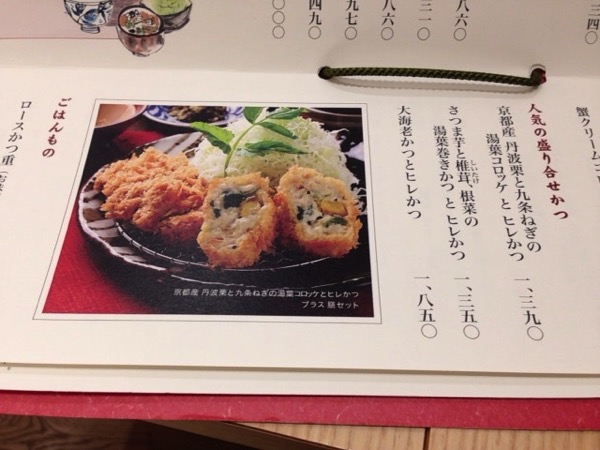 三四〇
八六〇
三一〇
八六〇
九七〇
四九〇
〇〇〇
人気の盛り合せかつ
京都産 丹波栗と九条ねぎの
湯葉コロッケ と ヒレかつ 一、三九〇
さつま芋と椎茸、根菜の
しいたけ
湯葉巻きかつ と ヒレかつ 一、三五〇
大海老かつとヒレかつ 一、八五〇
京都産 丹波栗と九条ねぎの湯葉コロッケとヒレかつ
プラス 膳セット
ごはんもの
ロースかつ重
蟹クリームコ